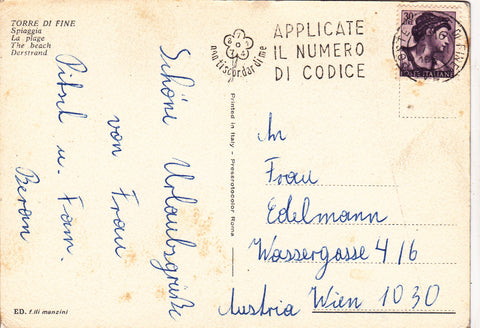 TORRE DI FINE
Spiaggia
La plage
The beach
Derstrand
non ti scordar di me
APPLICATE
IL NUMERO
DI CODICE
30
POSTE ITALIANE
Schöne Urlaubsgrüße
von Frau
Pitsch u. Fam.
Beran
Printed in Italy - Pressrotocolor Roma
An
Frau
Edelmann
Wassergasse 4/6
Austria Wien 1030
ED. f.lli manzini